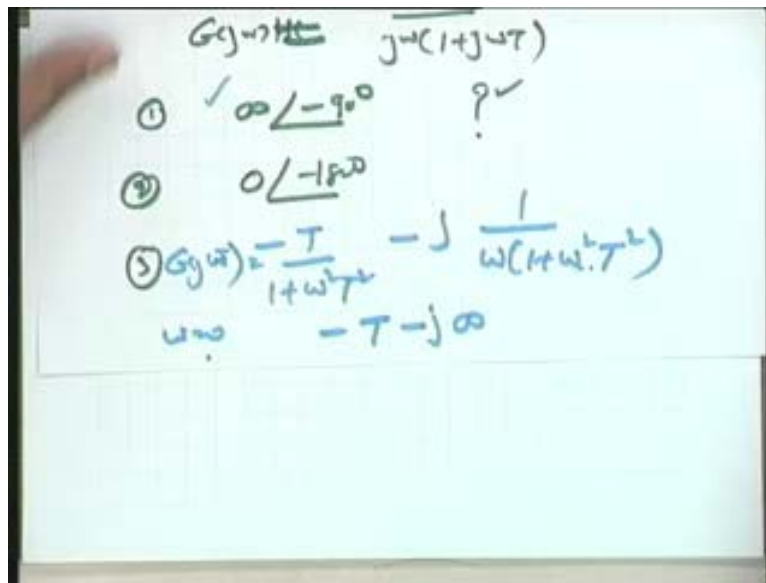 G(jω)H jω(1+jωT)
① ✓ ∞∠-90° ? ✓
② 0∠-180°
③ G(jω) = -T/(1+ω²T²) - j 1/(ω(1+ω²T²))
ω=0 -T-j∞